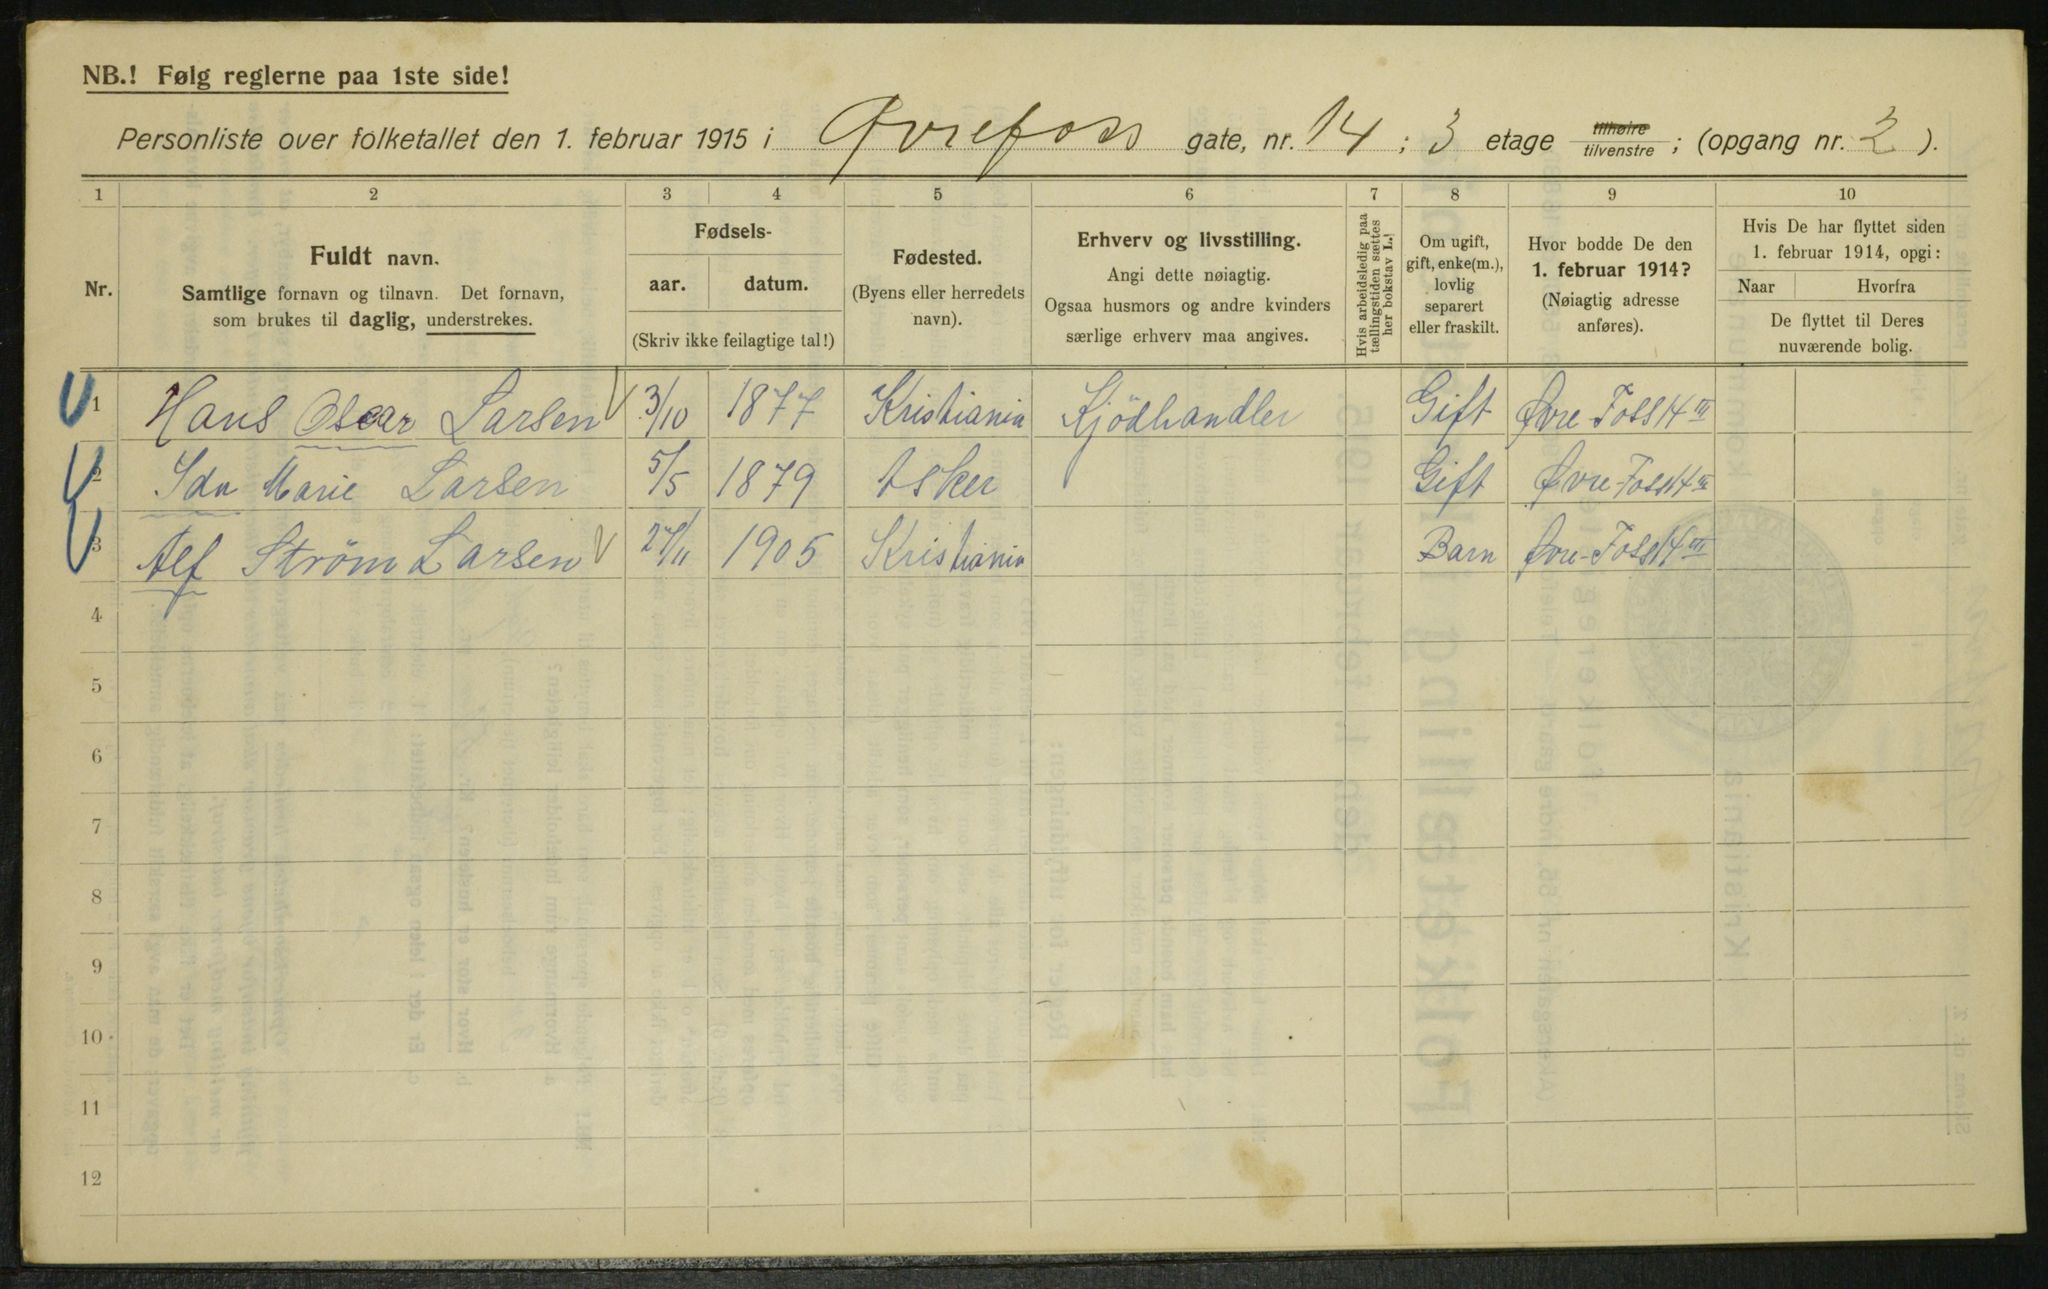 NB.! Følg reglerne paa 1ste side!
Personliste over folketallet den 1. februar 1915 i Øvrefoss gate, nr. 14 ; 3 etage tilhøire tilvenstre ; (opgang nr. 2 ).
1 2 3 4 5 6 7 8 9 10
Nr.
Fuldt navn.
Samtlige fornavn og tilnavn. Det fornavn,
som brukes til daglig, understrekes.
Fødsels-
aar. datum.
(Skriv ikke feilagtige tal!)
Fødested.
(Byens eller herredets
navn).
Erhverv og livsstilling.
Angi dette nøiagtig.
Ogsaa husmors og andre kvinders
særlige erhverv maa angives.
Hvis arbeidsledig paa
tællingstiden sættes
her bokstav L.!
Om ugift,
gift, enke(m.),
lovlig
separert
eller fraskilt.
Hvor bodde De den
1. februar 1914?
(Nøiagtig adresse
anføres).
Hvis De har flyttet siden
1. februar 1914, opgi:
Naar Hvorfra
De flyttet til Deres
nuværende bolig.
1 Hans Oscar Larsen 3/10 1877 Kristiania Kjödhandler Gift Øvre Foss 14 III
2 Ida Marie Larsen 5/5 1879 Asker Gift Øvre-Foss 14 III
3 Alf Strøm Larsen 27/11 1905 Kristiania Barn Øvre-Foss 14 III
4
5
6
7
8
9
10
11
12